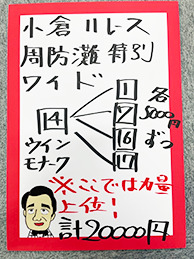 小倉11レース
周防灘特別
ワイド
14
1
7
16
17
各
5000円
ずつ
ウイン
モナーク
※ここでは力量
上位!
計20000円